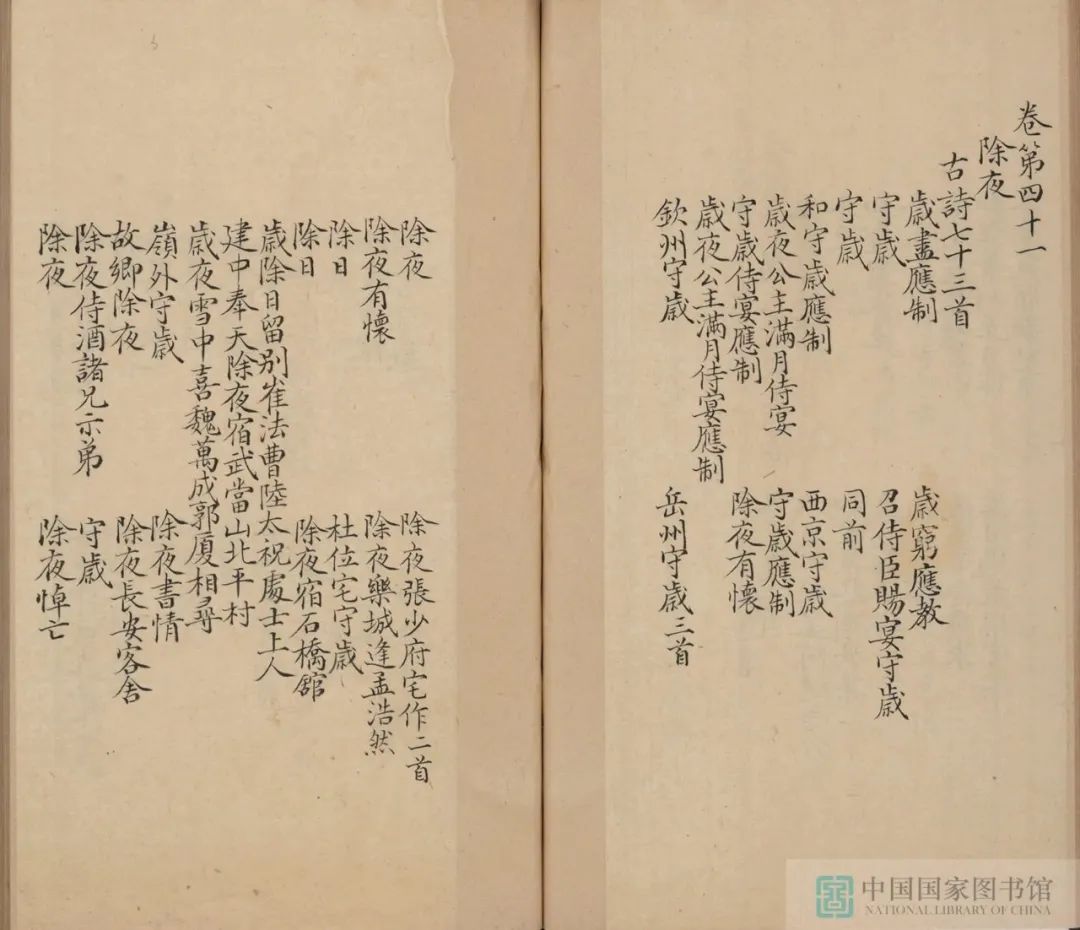 卷第四十一
除夜
古詩七十三首
歲盡應制
歲窮應教
守歲
召侍臣賜宴守歲
守歲
同前
和守歲應制
西京守歲
歲夜公主滿月侍宴
守歲應制
守歲侍宴應制
除夜有懷
歲夜公主滿月侍宴應制
欽州守歲
岳州守歲三首
除夜
除夜張少府宅作二首
除夜有懷
除夜樂城逢孟浩然
除日
杜位宅守歲
除日
除夜宿石橋舘
歲除日留别崔法曹陸太祝處士上人
建中奉天除夜宿武當山北平村
歲夜雪中喜魏萬成郭厦相尋
嶺外守歲
除夜書情
故鄉除夜
除夜長安客舍
除夜侍酒諸兄示弟
守歲
除夜
除夜悼亡
中国国家图书馆
NATIONAL LIBRARY OF CHINA